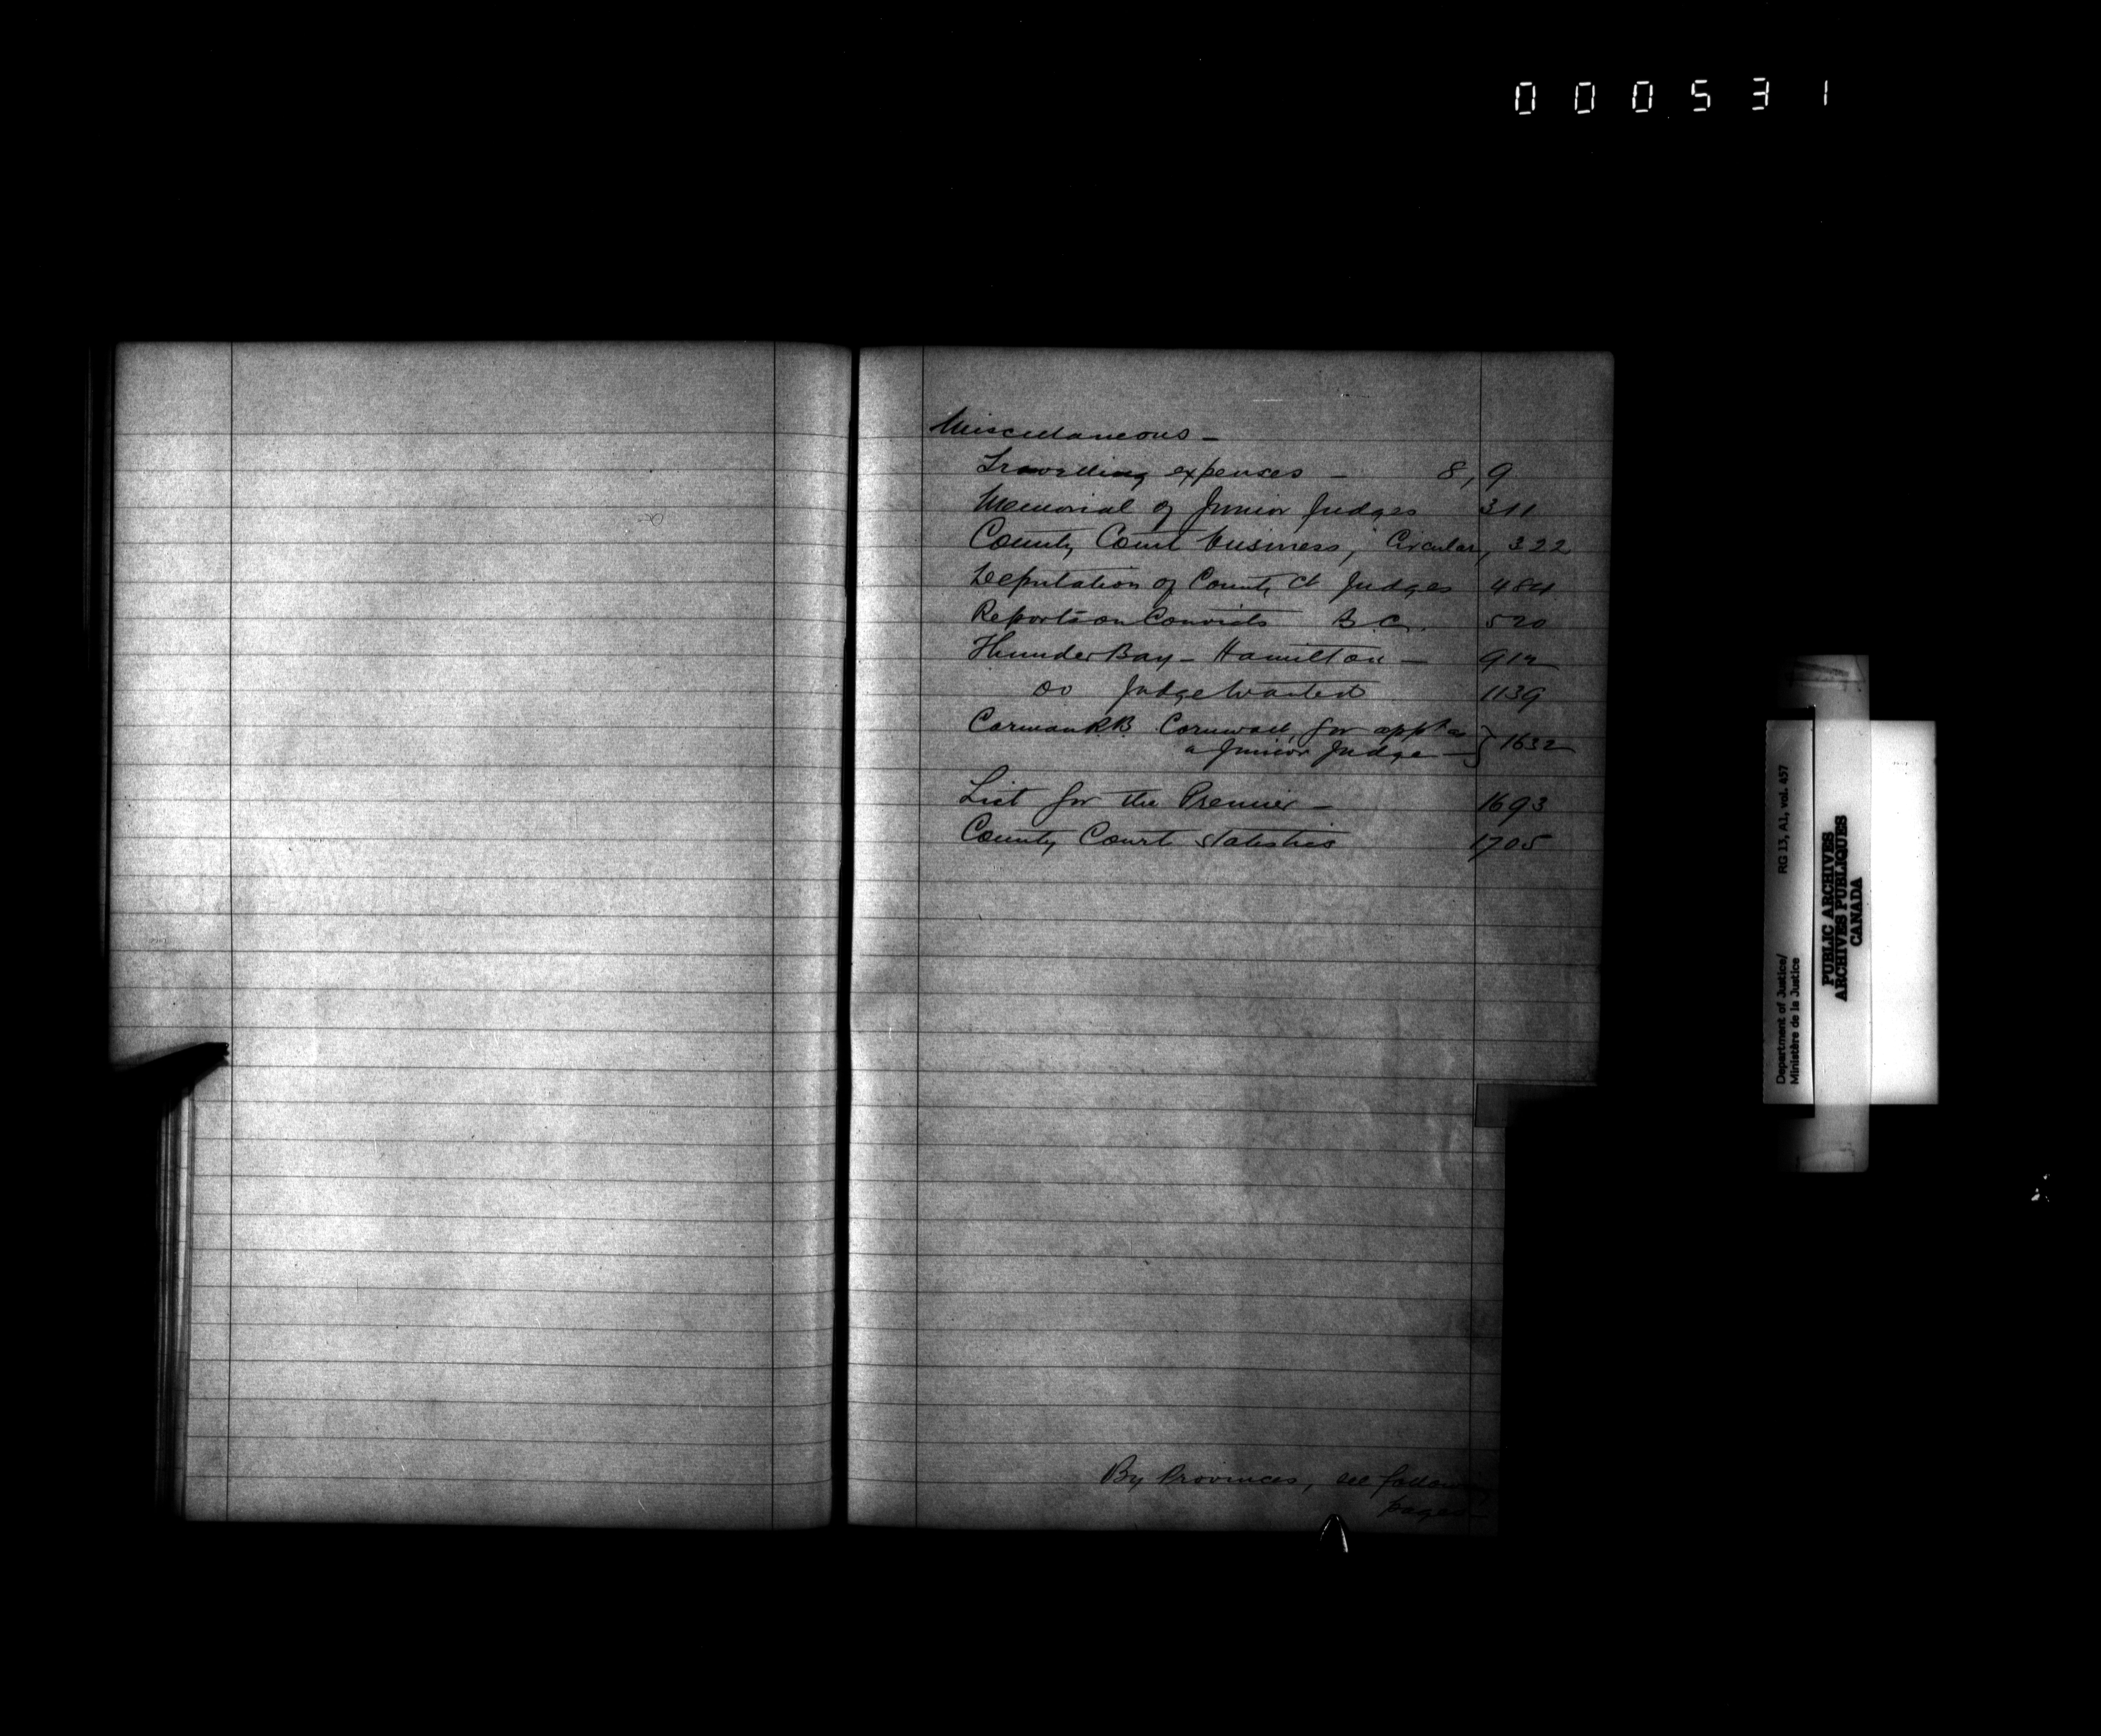 000531
Miscellaneous –
Travelling expenses – 8, 9
Memorial of Junior Judges 311
County Court business, Circular, 322
Deputation of County Ct Judges 484
Reports on Convicts B.C. 520
Thunder Bay – Hamilton – 912
do Judge Wanted 1139
Carman R.B. Cornwall, for appt as
a Junior Judge – } 1632
List for the Premier – 1693
County Court Statistics 1705
By Provinces, see following
pages
Department of Justice/ RG 13, A1, vol. 457
Ministère de la Justice
PUBLIC ARCHIVES
ARCHIVES PUBLIQUES
CANADA